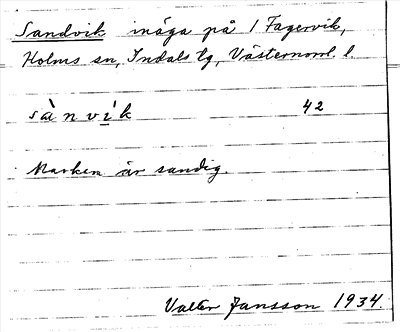 Sandvik inäga på 1 Fagervik,
Holms sn, Indals tg, Västernorrl. l.
sànvìk 42
Marken är sandig.
Valter Jansson 1934.